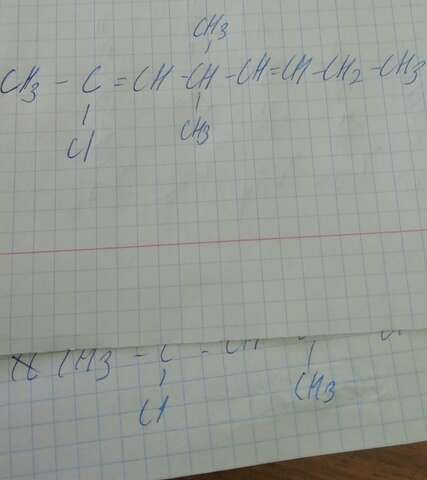 CH3
CH3 - C = CH - CH - CH = CH - CH2 - CH3
Cl CH3
CH3 - C - CH
Cl CH3